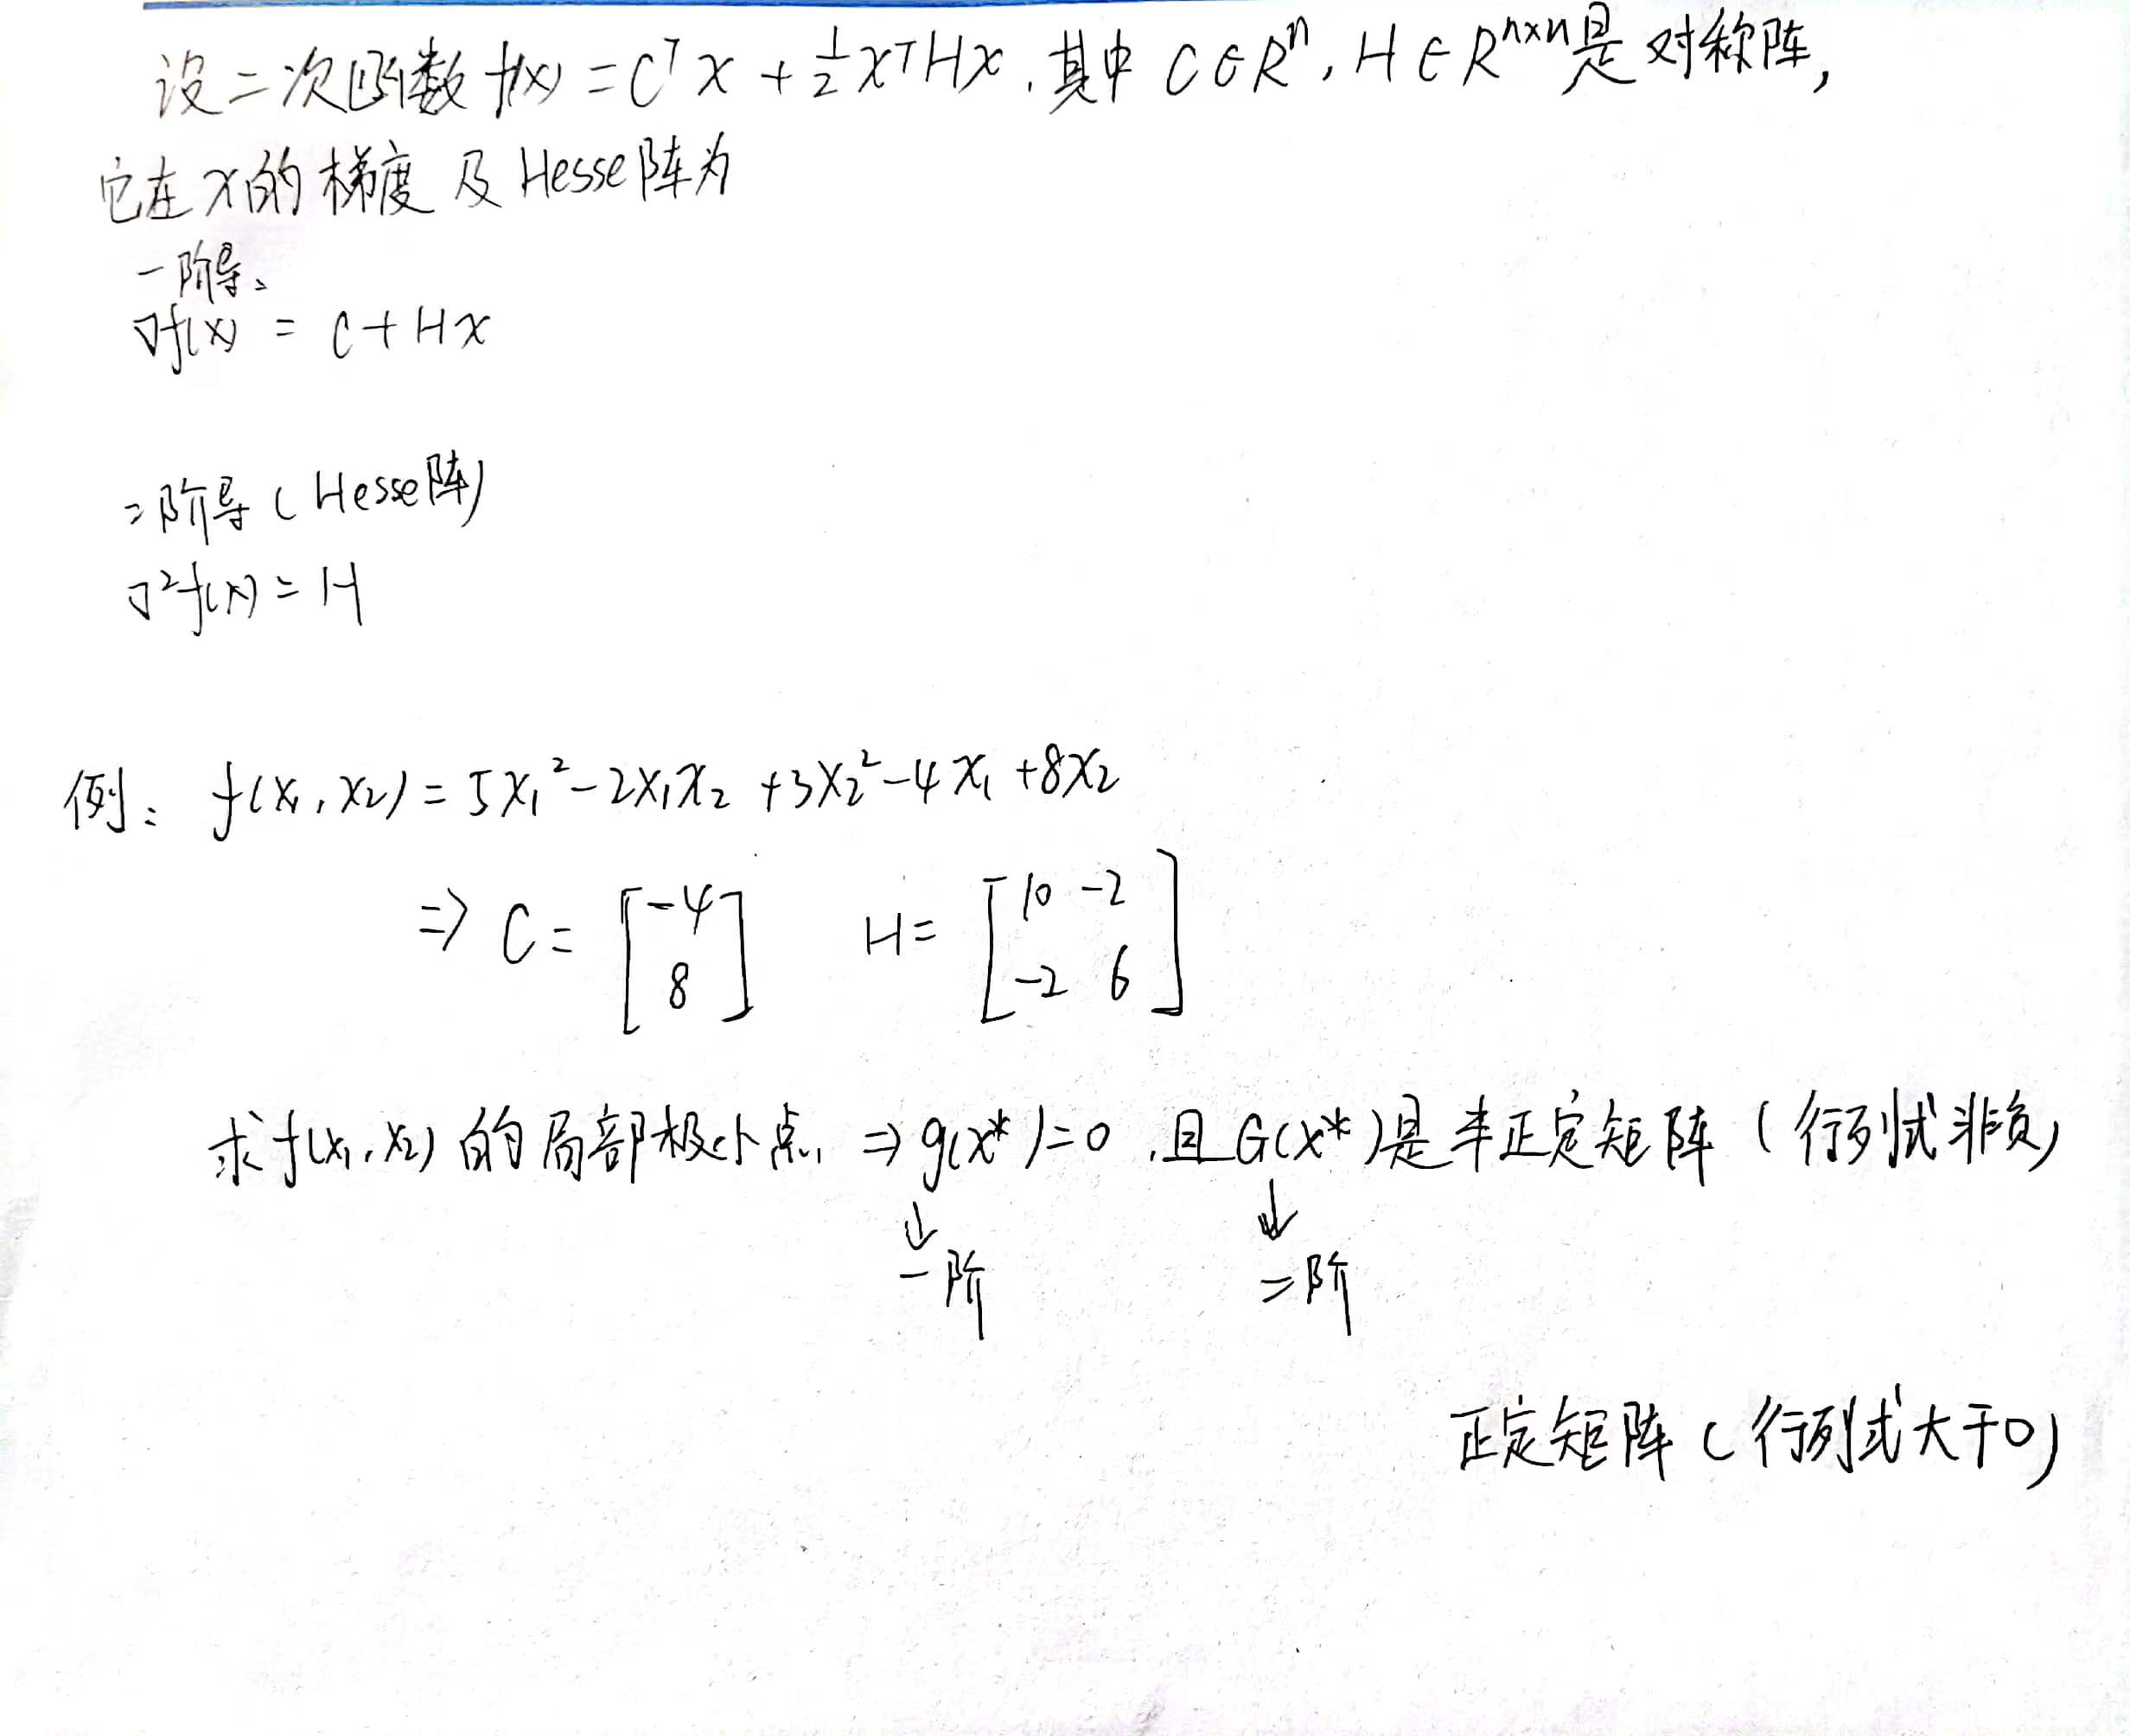 设二次函数 f(x) = C^T x + 1/2 x^T H x, 其中 C∈R^n, H∈R^{n×n}是对称阵,
它在x的梯度及Hesse阵为
一阶导、
∇f(x) = C + Hx
二阶导(Hesse阵)
∇²f(x) = H
例: f(x₁, x₂) = 5x₁² - 2x₁x₂ + 3x₂² - 4x₁ + 8x₂
⇒ C = [-4 8] H = [10 -2 -2 6]
求f(x₁, x₂)的局部极小点, ⇒ g(x*)=0, 且G(x*)是半正定矩阵(行列式非负)
↓ ↓
一阶 二阶
正定矩阵(行列式大于0)